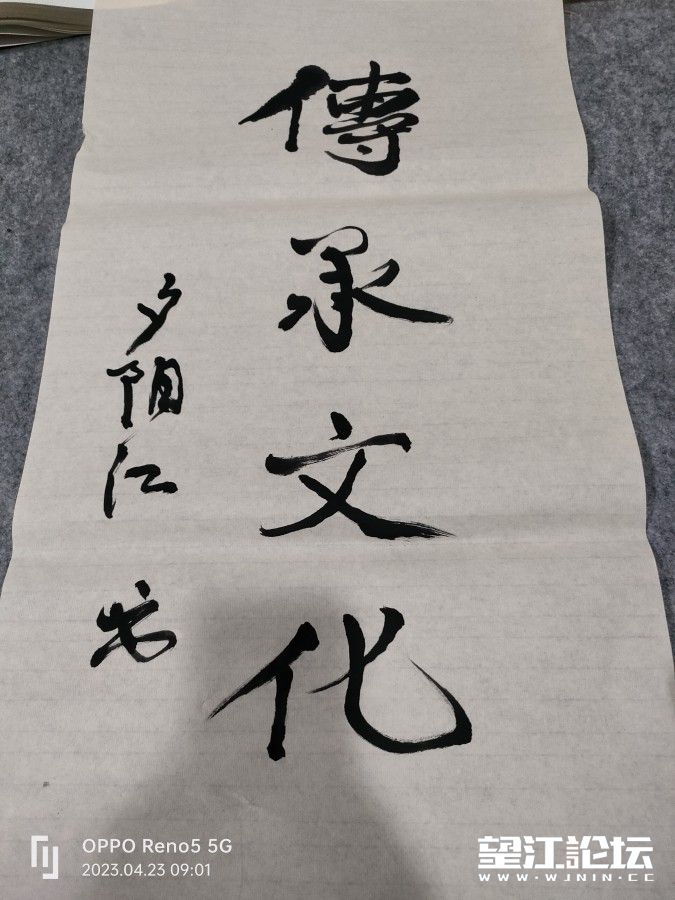 傳承文化
夕阳 书
OPPO Reno5 5G
2023.04.23 09:01
望江論坛
WWW.WJNIN.CC